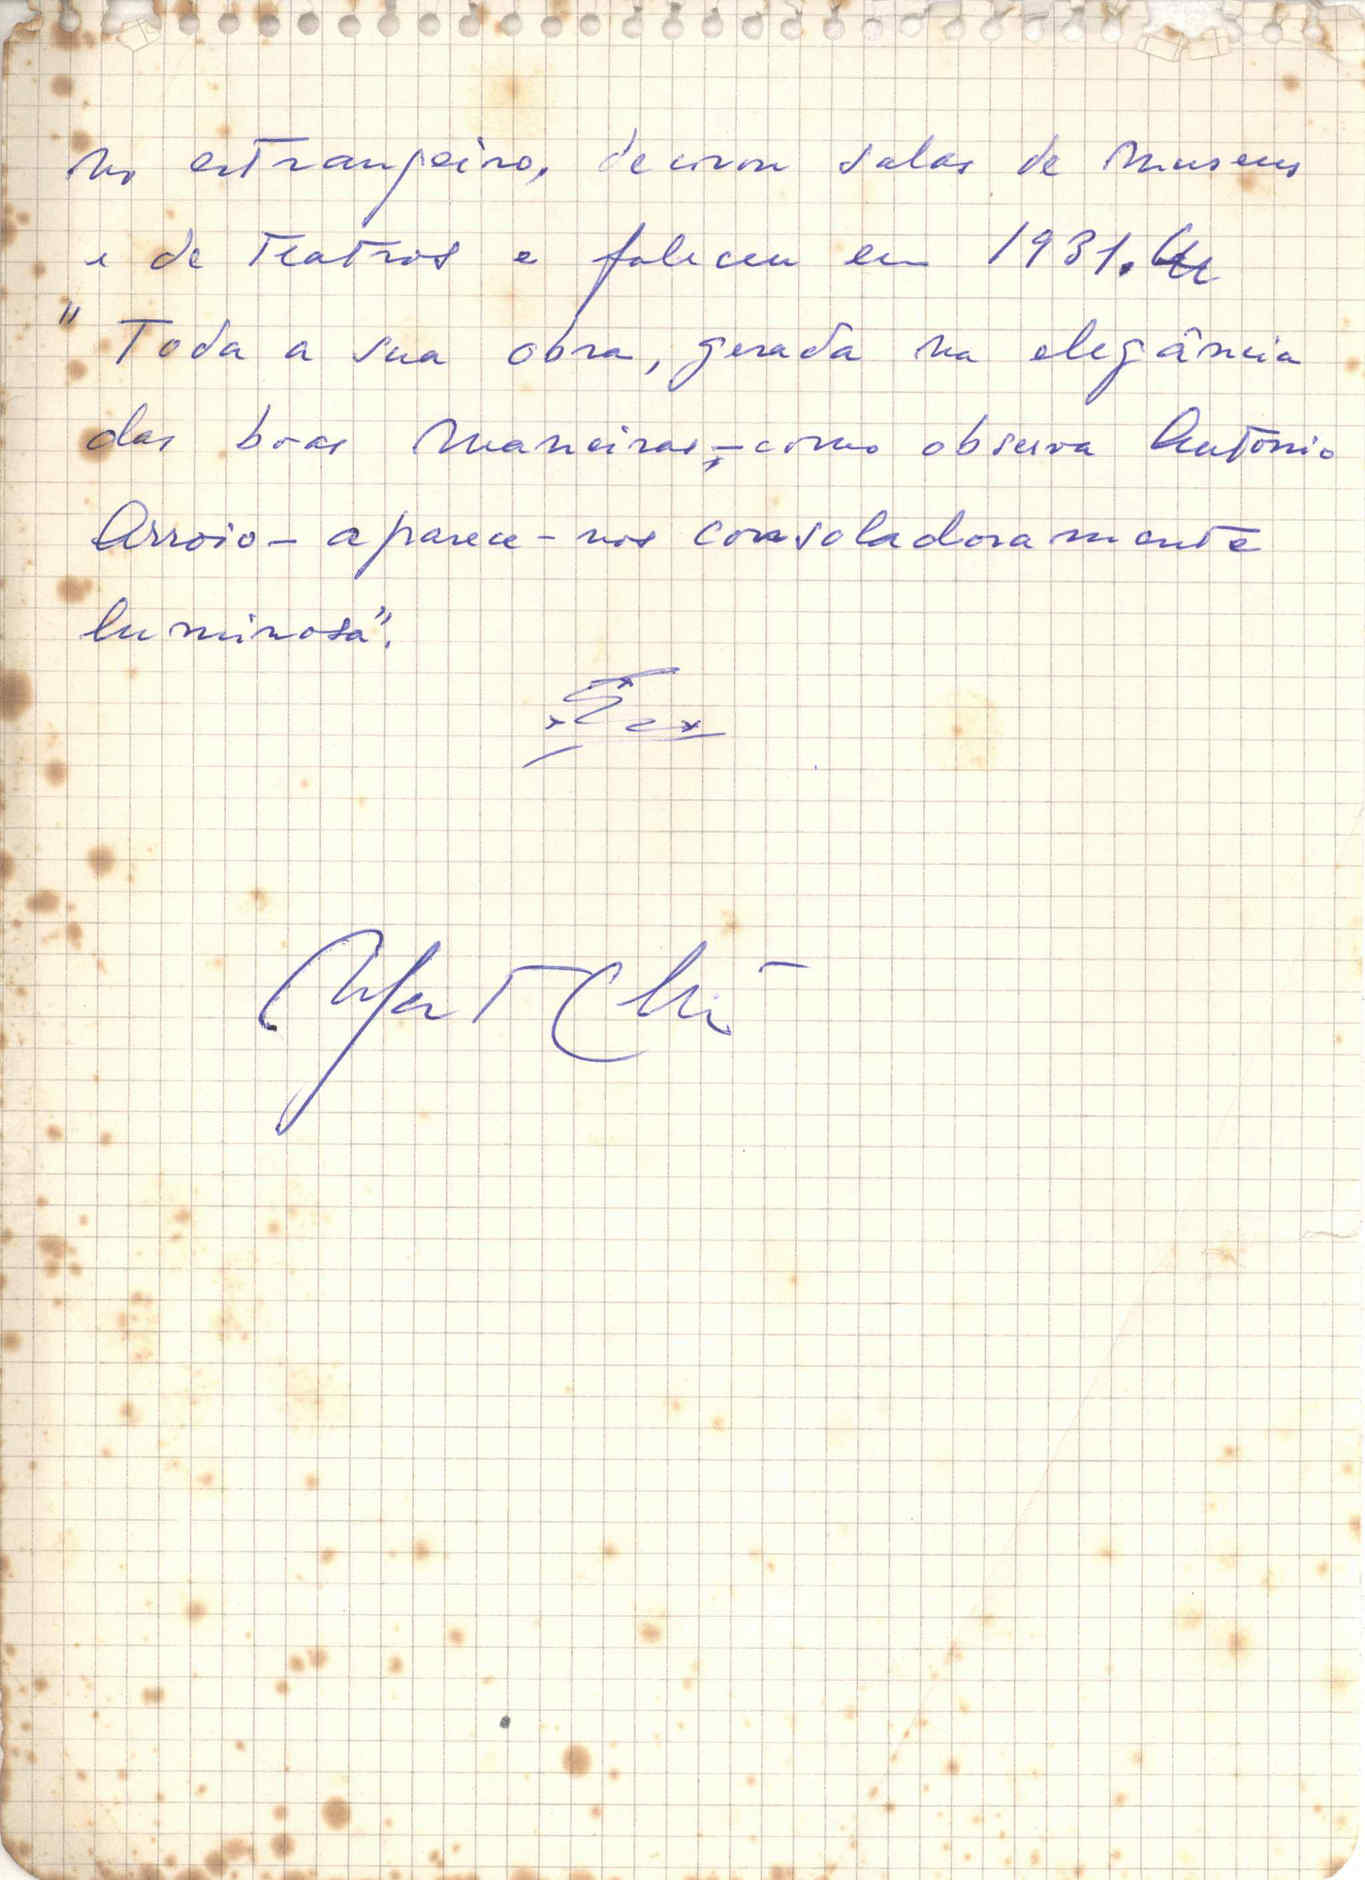 no estrangeiro, decorou salas de museus
e de teatros e faleceu em 1931.
"Toda a sua obra, gerada na elegância
das boas maneiras, – como observa António
Arroio – aparece-nos consoladoramente
luminosa".